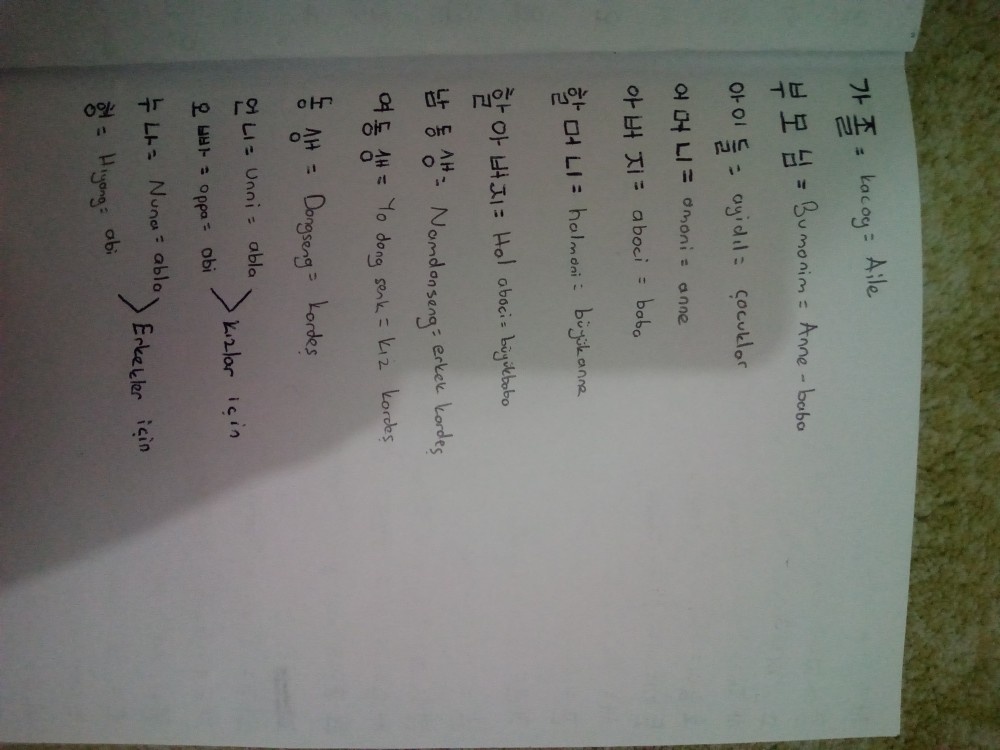 가족 = kacog = Aile
부모님 = Bumonim = Anne - baba
아이들 = ayidıl = çocuklar
어머니 = amoni = anne
아버지 = abaci = baba
할머니 = halmoni = büyükanne
할아버지 = Hal abaci = büyükbaba
남동생 = Namdonseng = erkek kardeş
여동생 = Yo dong senk = kız kardeş
동생 = Dongseng = kardeş
언니 = unni = abla
오빠 = oppa = abi > kızlar için
누나 = Nuna = abla > Erkekler için
형 = Hiyong = abi